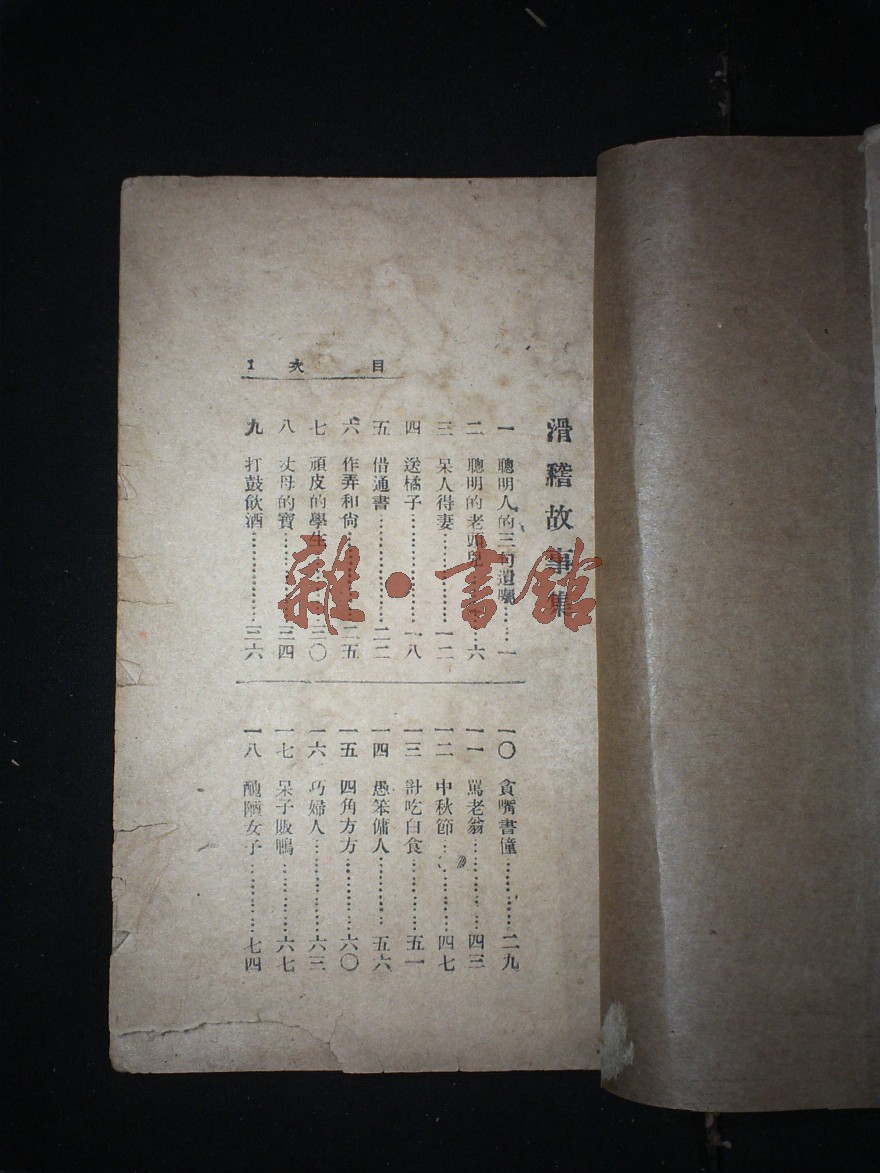 滑稽故事集
一 聰明人的三句遺囑……一
二 聰明的老頭兒……六
三 呆人得妻……一二
四 送橘子……一八
五 借通書……二二
六 作弄和尙……二五
七 頑皮的學生……三〇
八 丈母的寶……三四
九 打鼓飲酒……三六
一〇 貪嘴書僮……二九
一一 罵老翁……四三
一二 中秋節……四七
一三 計吃白食……五一
一四 愚笨傭人……五六
一五 四角方方……六〇
一六 巧婦人……六三
一七 呆子販鴨……六七
一八 醜陋女子……七四
目次 1
雜·書館